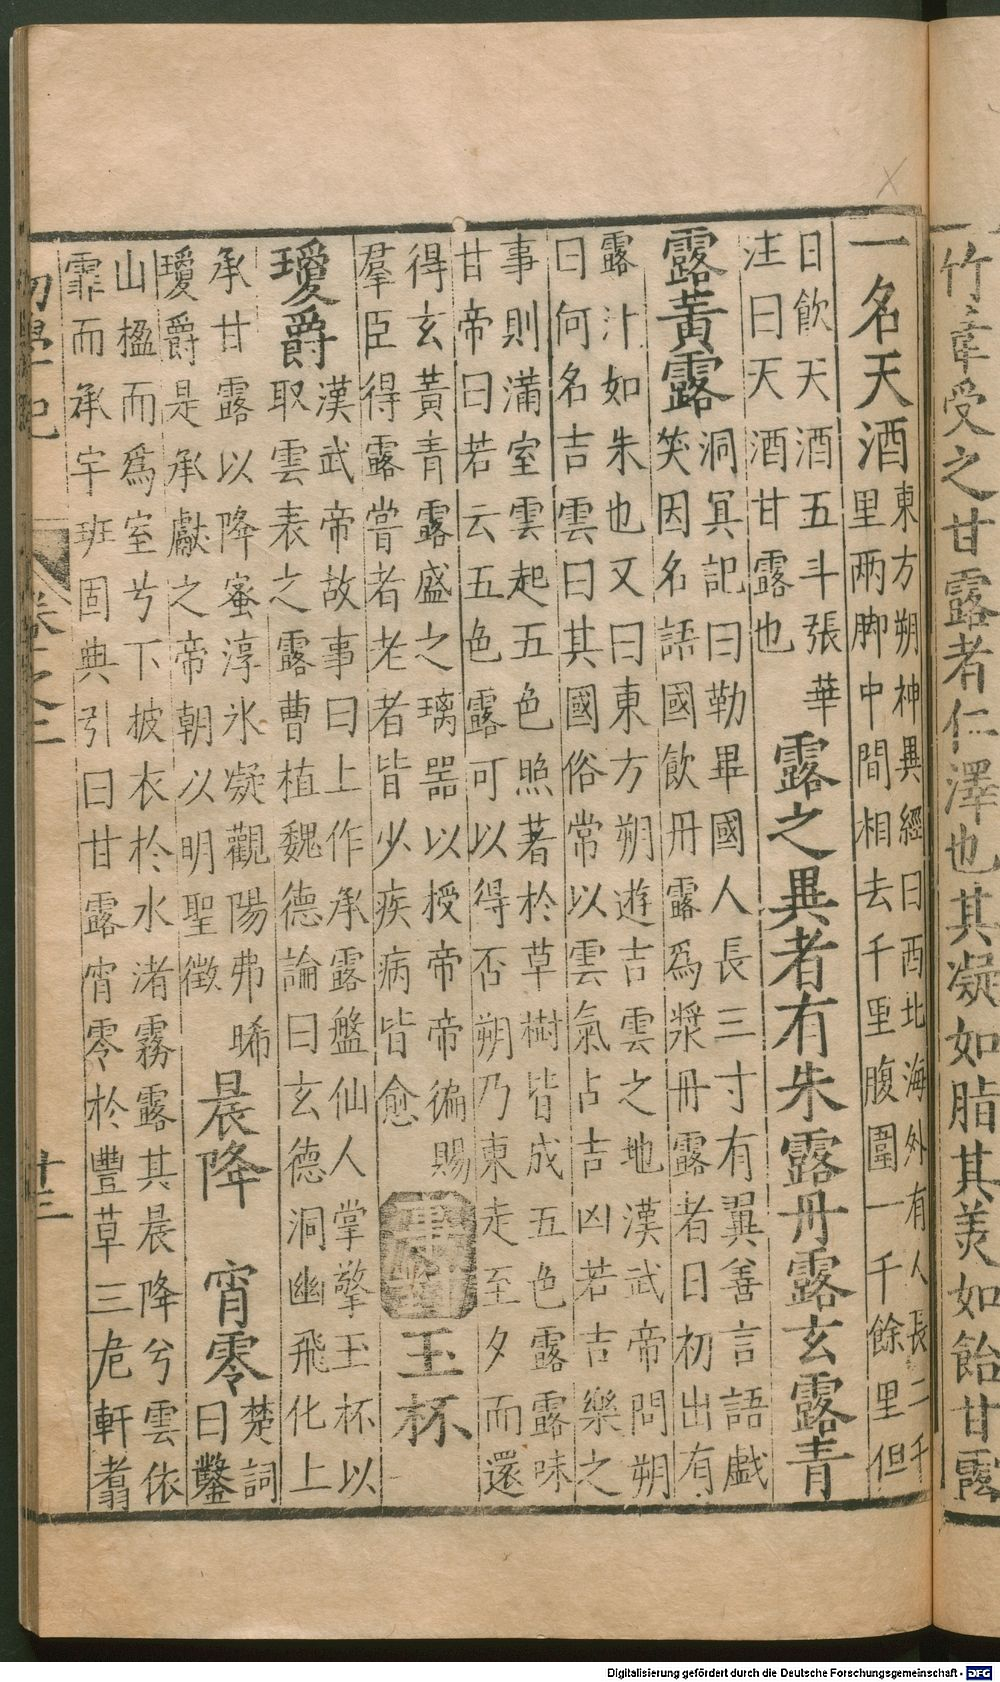 竹葦受之甘露者仁澤也其凝如脂其美如飴甘露
一名天酒
東方朔神異經曰西北海外有人長二千
里兩脚中間相去千里腹圍一千餘里但
日飲天酒五斗張華
注曰天酒甘露也
露之異者有朱露丹露玄露青
露黃露
洞冥記曰勒畢國人長三寸有翼善言語戲
笑因名語國飲丹露為漿丹露者日初出有
露汁如朱也又曰東方朔遊吉雲之地漢武帝問朔
曰何名吉雲曰其國俗常以雲氣占吉凶若吉樂之
事則滿室雲起五色照著於草樹皆成五色露露味
甘帝曰若云五色露可以得否朔乃東走至夕而還
得玄黃青露盛之璃器以授帝帝徧賜
羣臣得露嘗者老者皆少疾病皆愈
玉杯
瓊爵
漢武帝故事曰上作承露盤仙人掌擎玉杯以
取雲表之露曹植魏德論曰玄德洞幽飛化上
承甘露以降蜜淳氷凝觀陽弗晞
瓊爵是承獻之帝朝以明聖徵
晨降
宵零
楚詞
曰鑿
山楹而為室兮下披衣於水渚霧露其晨降兮雲依
霏而承宇班固典引曰甘露宵零於豐草三危軒翥
初學記
卷之二
廿三
Digitalisierung gefördert durch die Deutsche Forschungsgemeinschaft - DFG